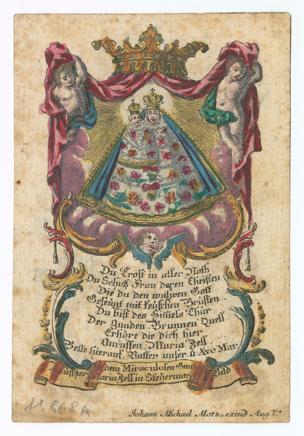 Du Trost in aller Noth
Du Schutz Frau deren Christen
Die du den wahren Gott
Gesäugt mit keuschen Brüsten
Du bist des Himels Thür
Der Gnaden Brunnen Quell
Erhöre die dich hier
Anruffen, Maria Zell
Bette hierauf. Vatter unser u. Ave Mar.
dem Miraculosen Gna
Maria Zell in Steyermarck
Bild
Johann Michael Motz, excud Aug. V.
11868A